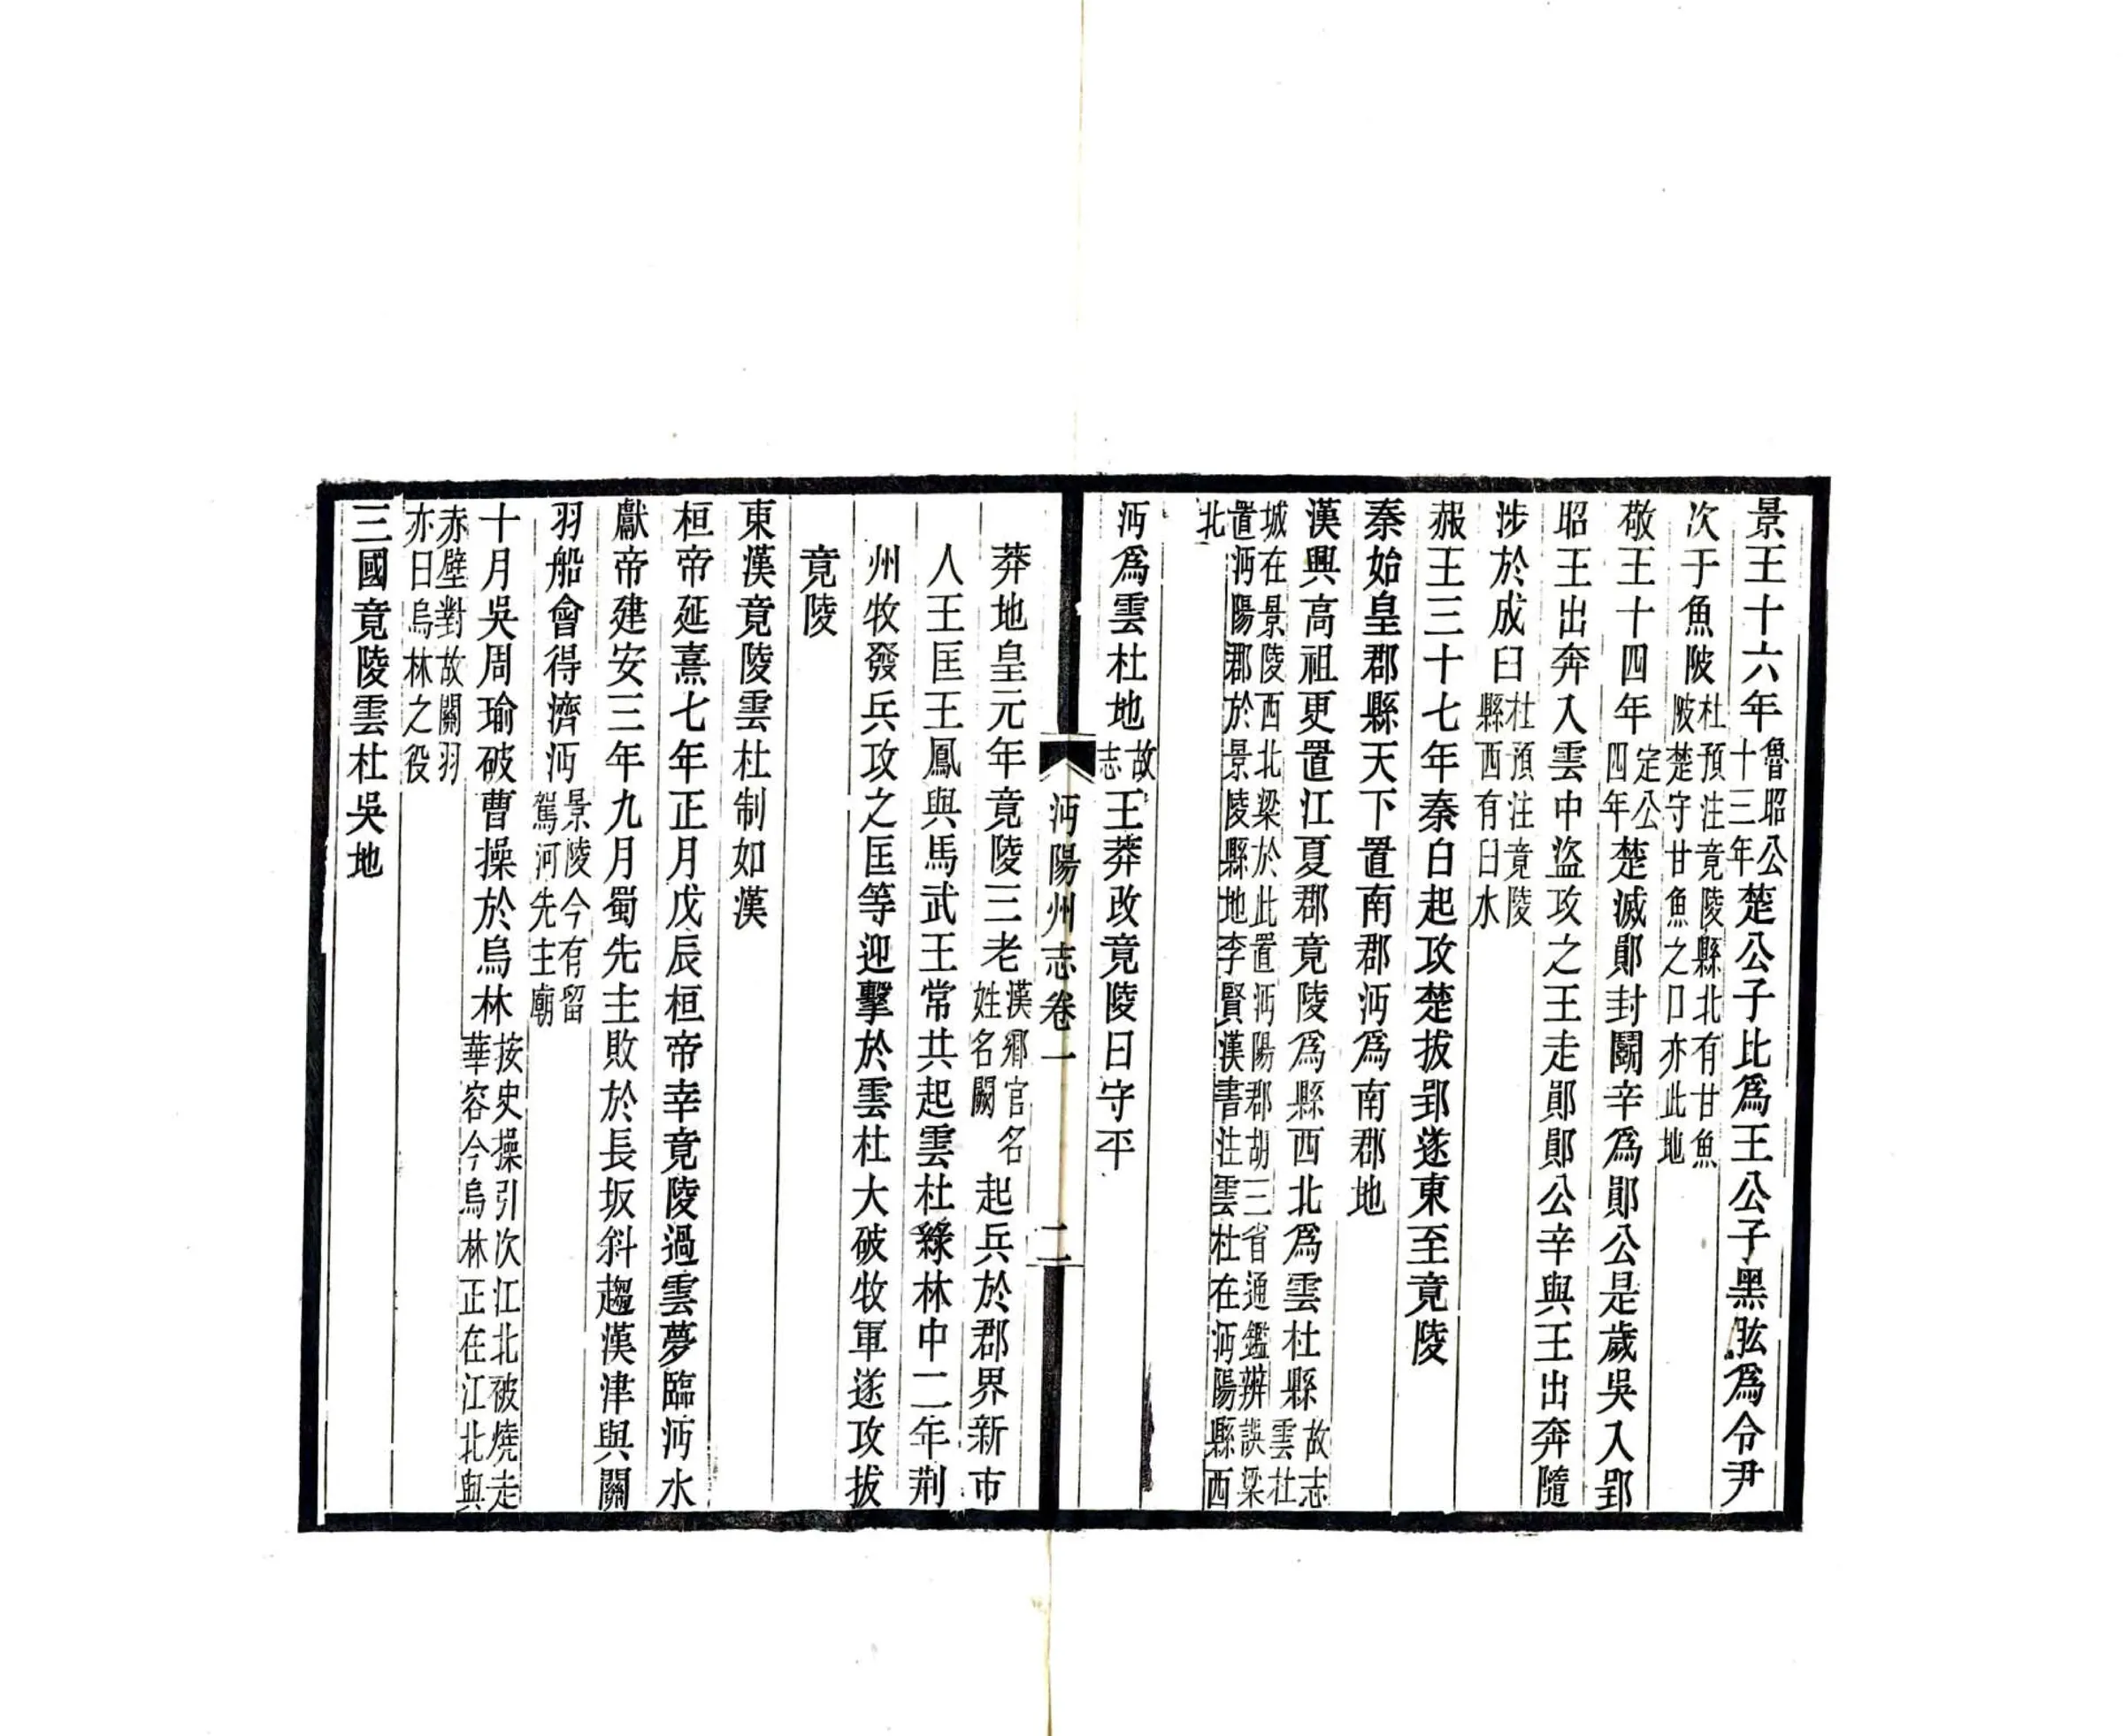 景王十六年魯昭公十三年楚公子比爲王公子黑肱爲令尹
次于魚陂杜預注竟陵縣北有甘魚陂楚守甘魚之口亦此地
敬王十四年定公四年楚滅鄖封鬭辛爲鄖公是歲吳入郢
昭王出奔入雲中盜攻之王走鄖鄖公辛與王出奔隨
涉於成臼杜預注竟陵縣西有臼水
赧王三十七年秦白起攻楚拔郢遂東至竟陵
秦始皇郡縣天下置南郡沔爲南郡地
漢興高祖更置江夏郡竟陵爲縣西北爲雲杜縣故志雲杜
城在景陵西北梁於此置沔陽郡胡三省通鑑辨誤梁
置沔陽郡於景陵縣地李賢漢書注雲杜在沔陽縣西
北
沔爲雲杜地故志王莽改竟陵曰守平
沔陽州志卷一 二
莽地皇元年竟陵三老漢鄉官名姓名闕起兵於郡界新市
人王匡王鳳與馬武王常共起雲杜綠林中二年荆
州牧發兵攻之匡等迎擊於雲杜大破牧軍遂攻拔
竟陵
東漢竟陵雲杜制如漢
桓帝延熹七年正月戊辰桓帝幸竟陵過雲夢臨沔水
獻帝建安三年九月蜀先主敗於長坂斜趨漢津與關
羽船會得濟沔景陵今有留駕河先主廟
十月吳周瑜破曹操於烏林按史操引次江北被燒走華容今烏林正在江北與
赤壁對故關羽亦曰烏林之役
三國竟陵雲杜吳地